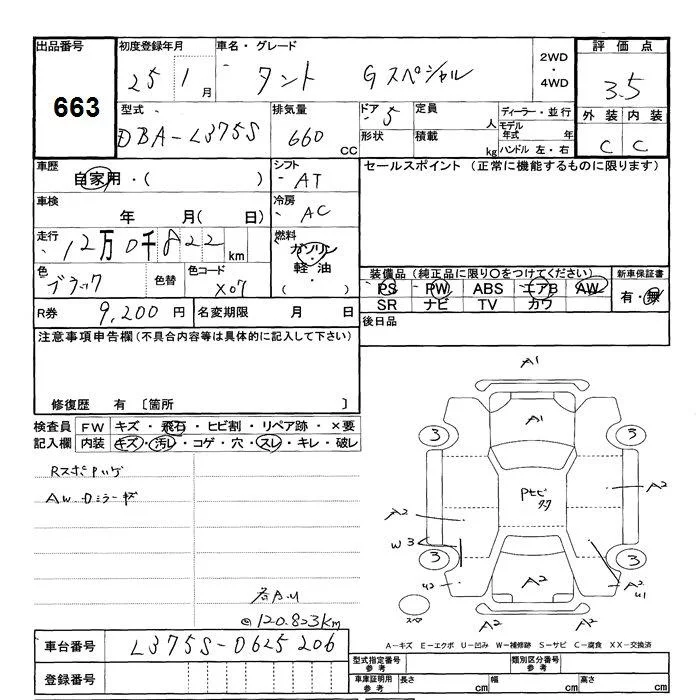 出品番号 初度登録年月 車名・グレード 2WD・4WD 評価点
663 25 1月 タント Gスペシャル 3.5
型式 排気量 ドア 5 定員 人 ディーラー・並行 外装 内装
DBA-L375S 660 CC 形状 積載 kg モデル年式 年 ハンドル 左・右 C C
車歴 自家用・( ) シフト AT セールスポイント (正常に機能するものに限ります)
車検 年 月( 日) 冷房 AC
走行 12万0千822km 燃料 ガソリン・軽油・( )
色 ブラック 色替 色コード X07
装備品 (純正品に限り○をつけてください) 新車保証書
PS PW ABS エアB AW 有・無
SR ナビ TV カワ
R券 9,200円 名変期限 月 日 後日品
注意事項申告欄(不具合内容等は具体的に記入して下さい)
修復歴 有 〔箇所 〕
検査員 FW キズ・飛石・ヒビ割・リペア跡・×要
記入欄 内装 キズ・汚レ・コゲ・穴・スレ・キレ・破レ
AW Dミラーキズ
@120.823Km
A1
A1
3 3
A2 A2
A2
W3
3 3
U2 A2 A2 U1
A2 A2
スペア
A-キズ E-エクボ U-凹み W-補修跡 S-サビ C-腐食 XX-交換済
車台番号 L375S-0625206
登録番号
型式指定番号 参考 類別区分番号 参考
車庫証明用 参考 長さ cm 幅 cm 高さ cm